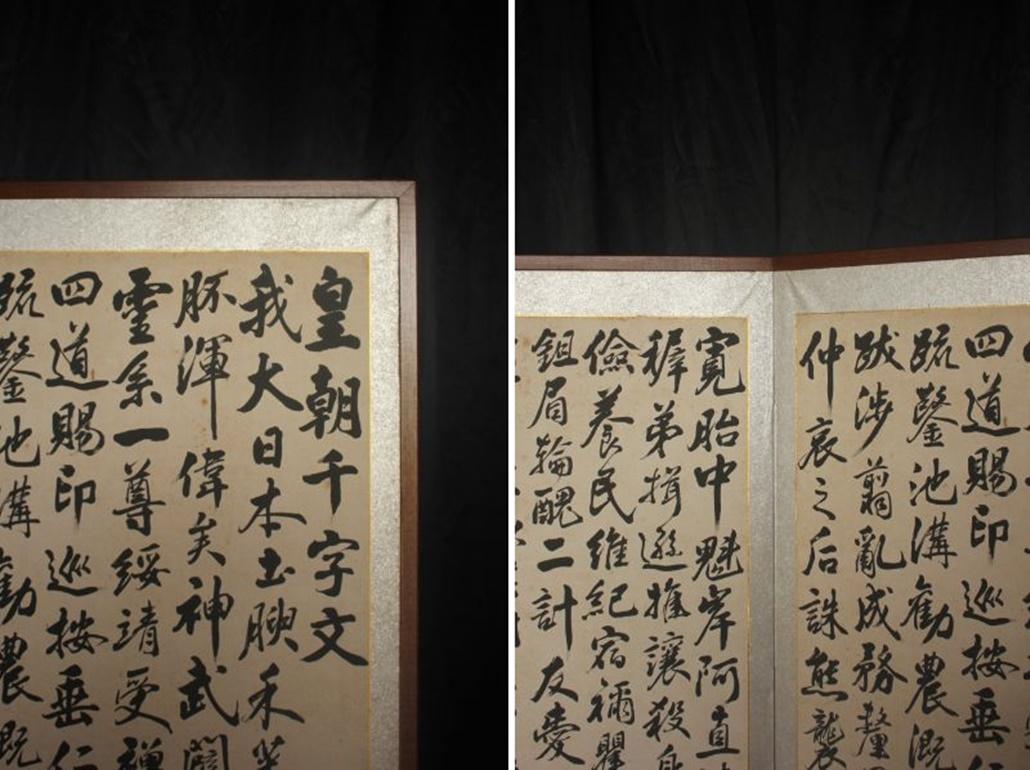 皇朝千字文
我大日本土腴禾
胚渾偉矣神武闢
靈系一尊綏靖受禪
四道賜印巡按垂仁
疏鑿池溝勸農溉
四道賜印巡按垂仁
疏鑿池溝勸農溉
跋涉翦亂成務釐
仲哀之后誅熊襲
寬胎中魁岸阿直
稺弟揖遜讓殺身
儉養民維紀宿禰瞿
鉏眉輪醜二計友愛